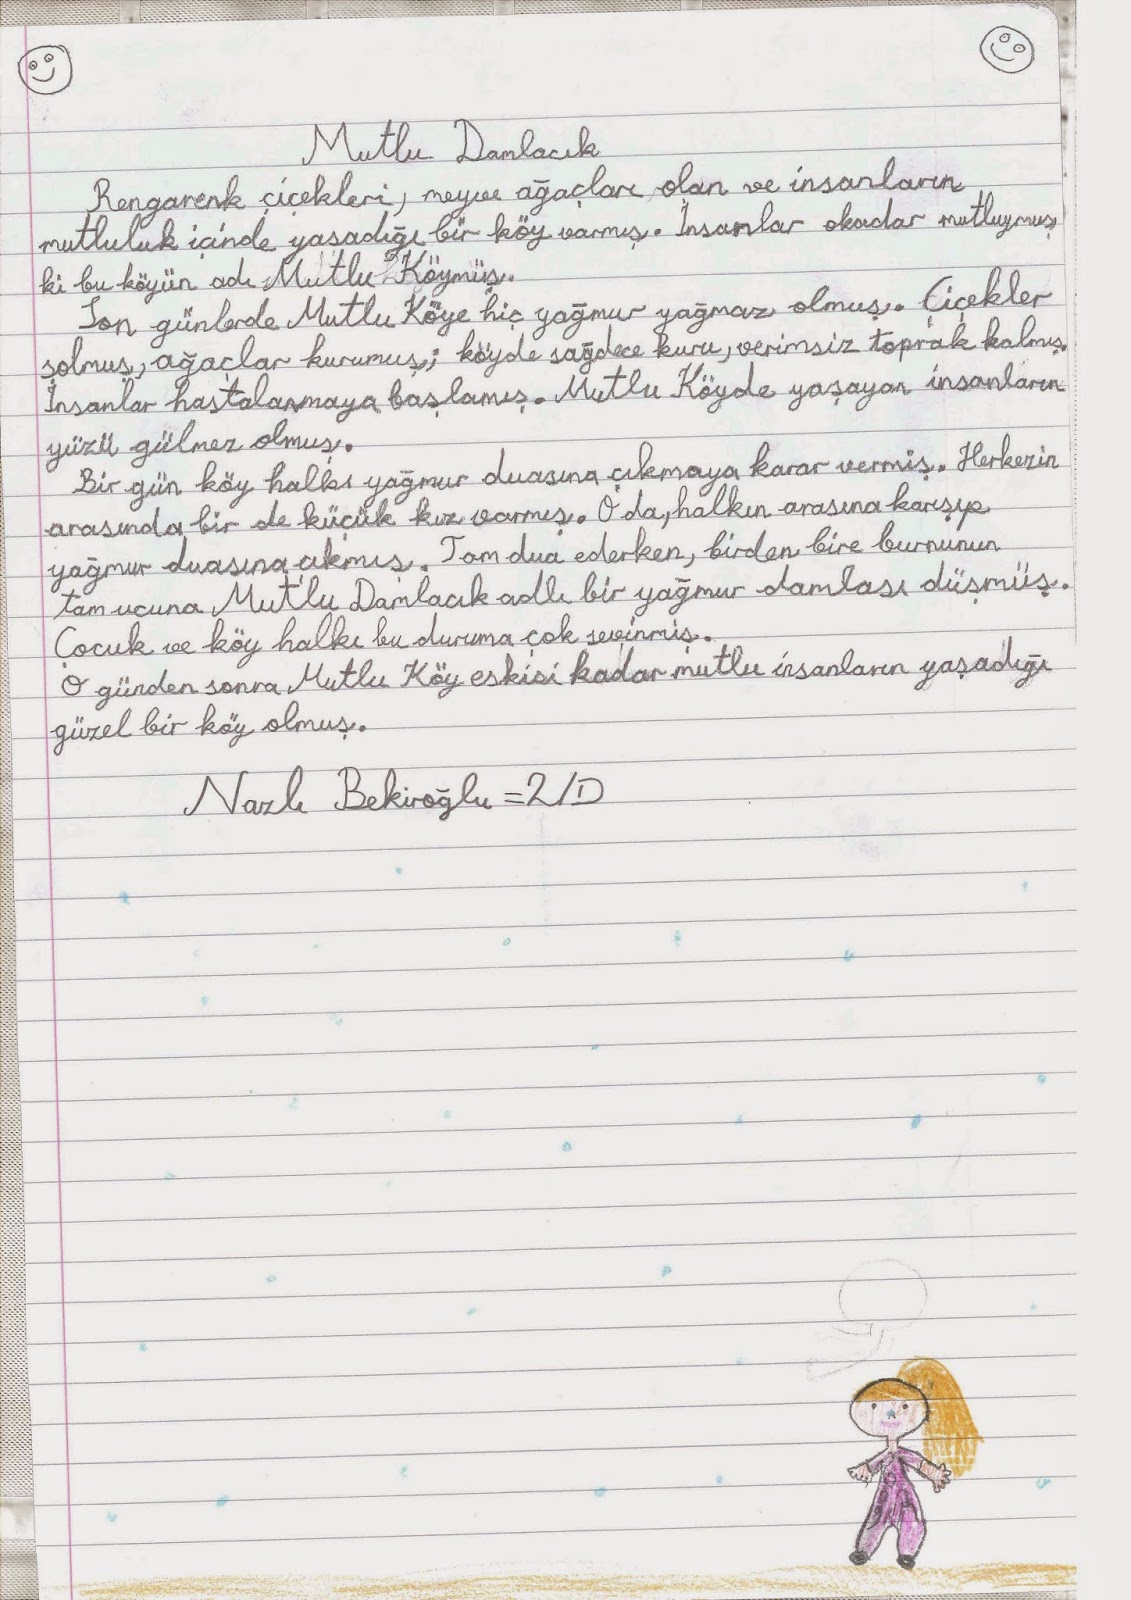 Mutlu Damlacık
Rengarenk çiçekleri, meyve ağaçları olan ve insanların
mutluluk içinde yaşadığı bir köy varmış. İnsanlar okadar mutluymuş
ki bu köyün adı Mutlu Köymüş.
Son günlerde Mutlu Köye hiç yağmur yağmaz olmuş. Çiçekler
solmuş, ağaçlar kurumuş; köyde sağdece kuru, verimsiz toprak kalmış.
İnsanlar hastalanmaya başlamış. Mutlu Köyde yaşayan insanların
yüzü gülmez olmuş.
Bir gün köy halkı yağmur duasına çıkmaya karar vermiş. Herkezin
arasında bir de küçük kız varmış. O da, halkın arasına karışıp
yağmur duasına çıkmış. Tam dua ederken, birden bire burnunun
tam ucuna Mutlu Damlacık adlı bir yağmur damlası düşmüş.
Çocuk ve köy halkı bu duruma çok sevinmiş.
O günden sonra Mutlu Köy eskisi kadar mutlu insanların yaşadığı
güzel bir köy olmuş.
Nazlı Bekiroğlu = 2/D